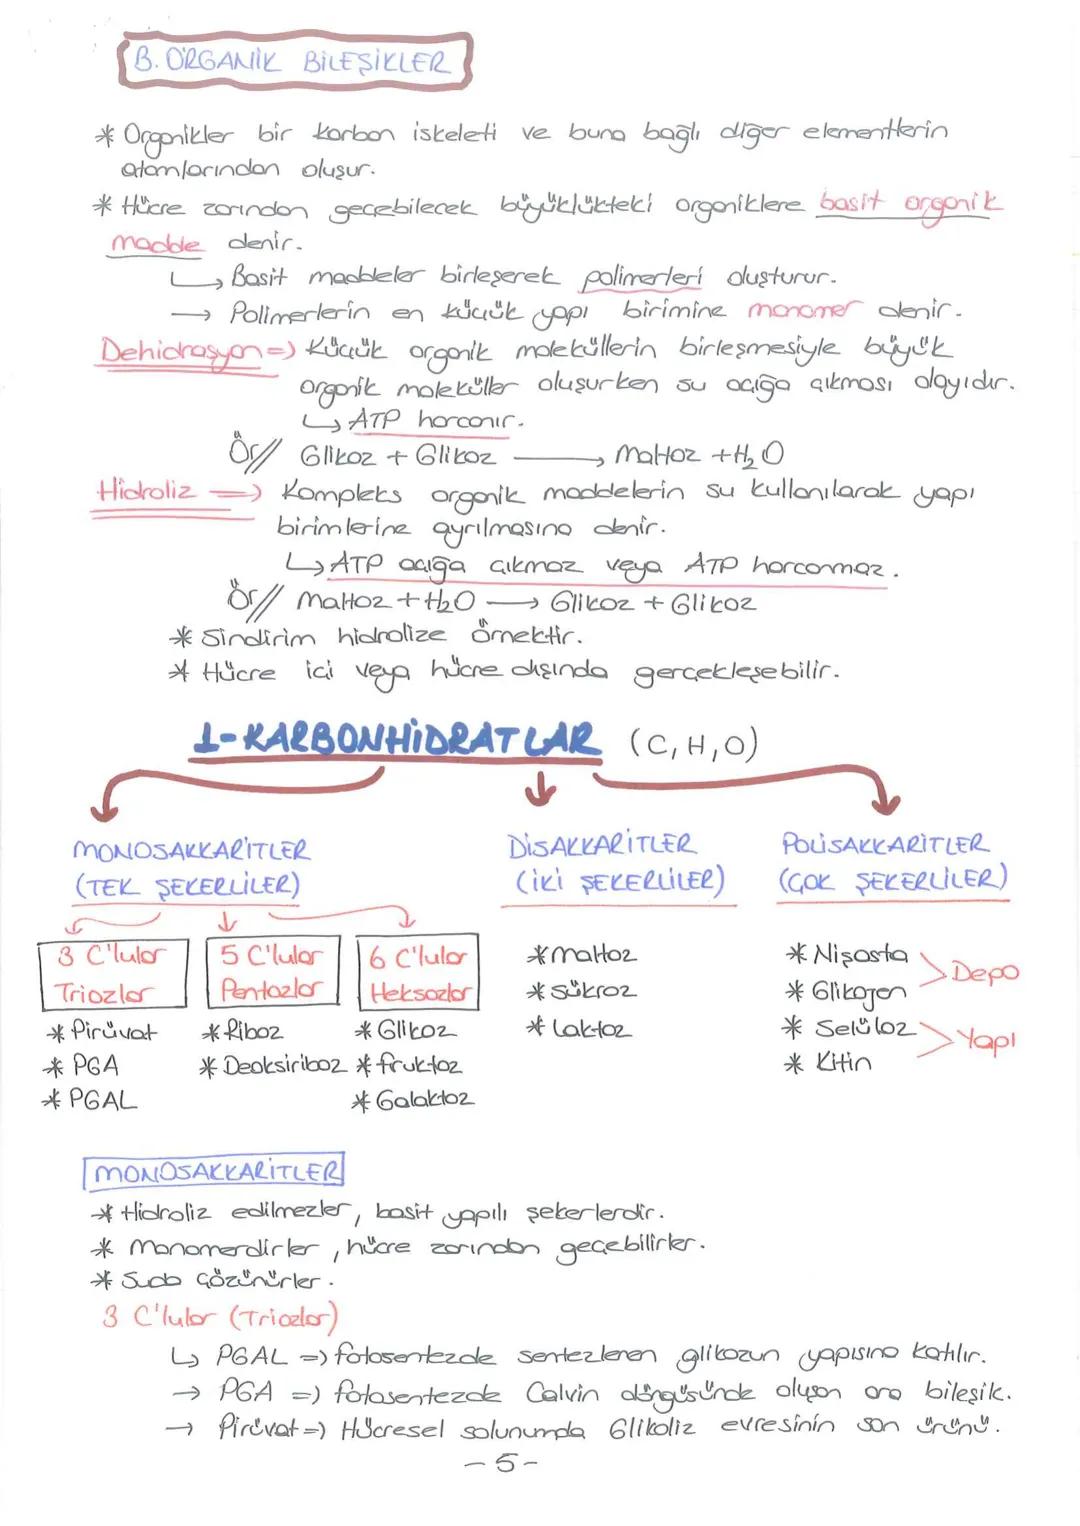 B. ORGANİK BİLEŞİKLER
* Organikler bir karbon iskeleti ve buna bağlı diğer elementlerin
atomlarından oluşur.
* Hücre zarından geçebilecek büyüklükteki organiklere basit organik
madde denir.
↳ Basit maddeler birleşerek polimerleri oluşturur.
→ Polimerlerin en küçük yapı birimine monomer denir.
Dehidrasyon => Küçük organik moleküllerin birleşmesiyle büyük
organik moleküller oluşurken su açığa çıkması olayıdır.
↳ ATP harcanır.
Ör// Glikoz + Glikoz → Maltoz + H₂O
Hidroliz => Kompleks organik maddelerin su kullanılarak yapı
birimlerine ayrılmasına denir.
↳ ATP açığa çıkmaz veya ATP harcanmaz.
Ör// Maltoz + H₂O → Glikoz + Glikoz
* Sindirim hidrolize örnektir.
* Hücre içi veya hücre dışında gerçekleşebilir.
1-KARBONHİDRATLAR (C,H,O)
MONOSAKKARİTLER
(TEK ŞEKERLİLER)
DİSAKKARİTLER
(İKİ ŞEKERLİLER)
POLİSAKKARİTLER
(ÇOK ŞEKERLİLER)
3 C'lular
Triozlar
* Pirüvat
* PGA
* PGAL
5 C'lular
Pentozlar
* Riboz
* Deoksiriboz
6 C'lular
Heksozlar
* Glikoz
* fruktoz
* Galaktoz
* Maltoz
* Sükroz
* Laktoz
* Nişasta
* Glikojen
Depo
* Selüloz
* Kitin
Yapı
MONOSAKKARİTLER
* Hidroliz edilmezler, basit yapılı şekerlerdir.
* Monomerdirler, hücre zarından geçebilirler.
* Suda çözünürler.
3 C'lular (Triozlar)
↳ PGAL => fotosentezde sentezlenen glikozun yapısına katılır.
→ PGA => fotosentezde Calvin döngüsünde oluşan ara bileşik.
→ Pirüvat => Hücresel solunumda Glikoliz evresinin son ürünü.
- 5 -